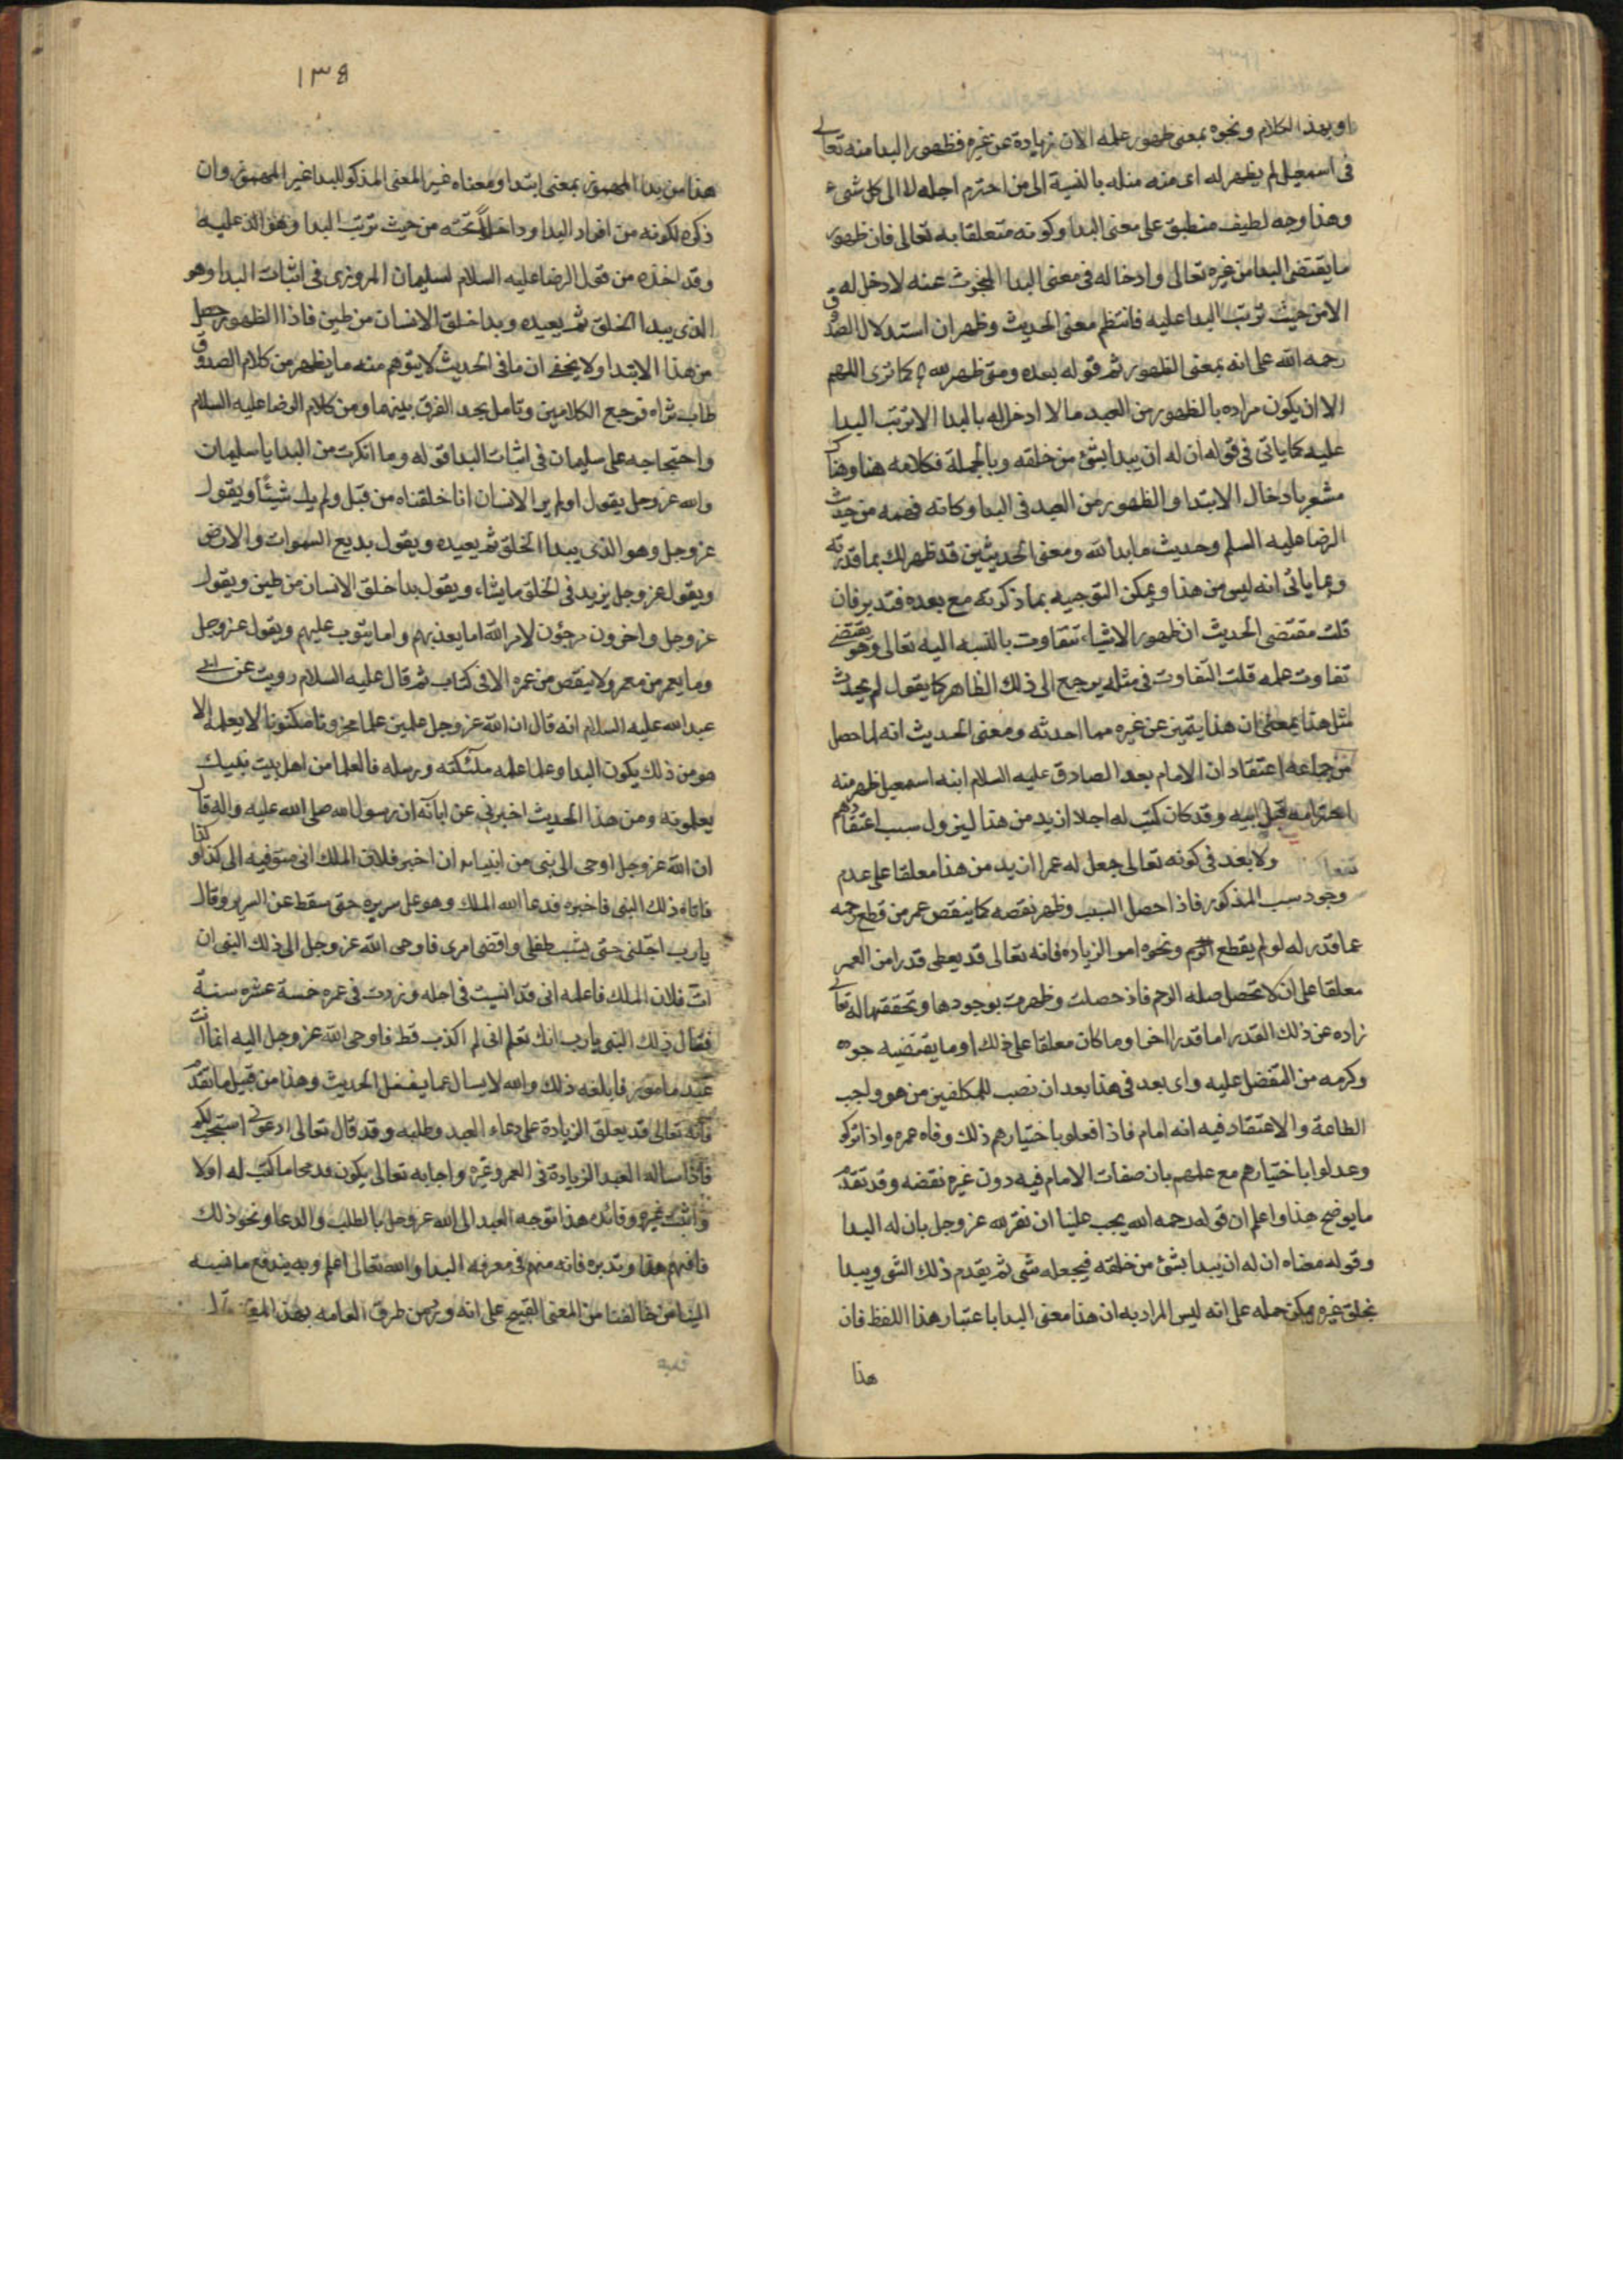 او بهذا الكلام ونحوه بمعنى ظهور علمه الان زيادة عن غيره فظهور البدا منه تعالى
فى اسمعيل لم يظهر له اى منه مثله بالنسبة الى من اخترم اجله لا الى كل شىء
وهذا وجه لطيف منطبق على معنى البدا وكونه متعلقا به تعالى فان ظهور
ما يقتضى البدا من غيره تعالى وادخاله فى معنى البدا المبحوث عنه لا دخل له
الا من حيث ترتب البدا عليه فانتظم معنى الحديث وظهر ان استدلال الصدوق
رحمه الله على انه بمعنى الظهور ثم قوله بعده ومتى ظهر لله كما ترى اللهم
الا ان يكون مراده بالظهور من العبد مالا ادخل له بالبدا الا ترتب البدا
عليه كما ياتى فى قوله ان له ان يبدا بشئ من خلقه وبالجملة فكلامه هنا وهناك
مشعر بادخال الابتدا والظهور من العبد فى البدا وكانه فهمه من حديث
الرضا عليه السلم وحديث ما بدا لله ومعنى الحديثين قد ظهر لك بما قدرته
وبما ياتى انه ليس من هذا ويمكن التوجيه بما ذكرته مع بعده فتدبر فان
قلت مقتضى الحديث ان ظهور الاشياء تتفاوت بالنسبه اليه تعالى وهو يقتضى
تفاوت علمه قلت التفاوت فى مثله يرجع الى ذلك الظاهر كما يقول لم يحدث
مثل هذا بمعنى ان هذا يتميز عن غيره مما احدثه ومعنى الحديث انه لما حصل
من جماعه اعتقاد ان الامام بعد الصادق عليه السلام ابنه اسمعيل ظهر منه
اخترامه قبل ابيه وقد كان كتب له اجلا ازيد من هذا ليزول سبب اعتقادهم
ولا بعد فى كونه تعالى جعل له عمرا ازيد من هذا معلقا على عدم
وجود سبب المذكور فاذا حصل السبب وظهر نقصه كما ينقص عمر من قطع رحمه
عما قدر له لو لم يقطع الرحم ونحوه امر الزياده فانه تعالى قد يعطى قدرا من العمر
معلقا على ان لا تحصل صله الرحم فاذ حصلت وظهرت بوجودها وتحققتها له تعالى
زاده عن ذلك القدر اما قدرا اخر او ما كان معلقا على ذلك او ما يقتضيه جوده
وكرمه من التفضل عليه واى بعد فى هذا بعد ان نصب للمكلفين من هو واجب
الطاعة والاعتقاد فيه انه امام فاذا فعلو باختيارهم ذلك وفاه عمره واذا تركو
وعدلوا باختيارهم مع علمهم بان صفات الامام فيه دون غيره نقضه وقد تقدم
ما يوضح هذا واعلم ان قوله رحمه الله يجب علينا ان نقر لله عز وجل بان له البدا
وقوله معناه ان له ان يبدا بشئ من خلقه فيجعله شى ثم يقدم ذلك الشى ويبدا
بخلق غيره يمكن حمله على انه ليس المراد به ان هذا معنى البدا باعتبار هذا اللفظ فان
هذا
١٣٥
هذا من بدا المهموز بمعنى ابتدا ومعناه غير المعنى المذكور للبدا غير المهموز وان
ذكره لكونه من افراد البدا وداخلا تحته من حيث ترتب البدا وهو الذ عليه
وقد اخذه من قول الرضا عليه السلام لسليمان المروزى فى اثبات البدا وهو
الذى يبدا الخلق ثم يعيده وبدا خلق الانسان من طين فاذا الظهور حصل
من هذا الابتدا ولا يخفى ان ما فى الحديث لا يتوهم منه ما يظهر من كلام الصدوق
طاب ثراه فرجع الكلامين وتامل يجد الفرق بينهما ومن كلام الرضا عليه السلام
واحتجاجه على سليمان فى اثبات البدا قوله وما انكرت من البدا يا سليمان
والله عز وجل يقول او لم ير الانسان انا خلقناه من قبل ولم يك شيئا ويقول
عز وجل وهو الذى يبدا الخلق ثم يعيده ويقول بديع السموات والارض
ويقول عز وجل يزيد فى الخلق ما يشاء ويقول بدا خلق الانسان من طين ويقول
عز وجل واخرون مرجؤن لامر الله اما يعذبهم واما يتوب عليهم ويقول عز وجل
وما يعمر من معمر ولا ينقص من عمره الا فى كتاب ثم قال عليه السلام رويت عن ابى
عبد الله عليه السلام انه قال ان الله عز وجل علمين علما مخزونا مكنونا لا يعلمه الا
هو من ذلك يكون البدا وعلما علمه ملئكته ورسله فالعلما من اهل بيت نبيك
يعلمونه ومن هذا الحديث اخبرنى عن ابائه ان رسول الله صلى الله عليه واله قال
ان الله عز وجل اوحى الى نبى من انبيائه ان اخبر فلان الملك انى متوفيه الى كذا وكذا
فاتاه ذلك النبى فاخبره فدعا الله الملك وهو على سريره حتى سقط عن السرير وقال
يا رب اجلنى حتى يشب طفلى واقضى امرى فاوحى الله عز وجل الى ذلك النبى ان
ات فلان الملك فاعلمه انى قد انسيت فى اجله وزدت فى عمره خمسة عشره سنة
فقال ذلك النبى يا رب انك تعلم انى لم اكذب قط فاوحى الله عز وجل اليه انما انت
عبد مامور فابلغه ذلك والله لا يسال عما يفعل الحديث وهذا من قبيل ما تقدم
فانه تعالى قد يعلق الزيادة على دعاء العبد وطلبه وقد قال تعالى ادعونى استجب لكم
فاذا ساله العبد الزيادة فى العمر وغيره واجابه تعالى يكون قد محا ما كتب له اولا
واثبت غيره وفائده هذا توجه العبد الى الله عز وجل بالطلب والدعا ونحو ذلك
فافهم هذا وتدبره فانه مهم فى معرفه البدا والله تعالى اعلم وبه يندفع ما نسبه
الينا من خالفنا من المعنى القبيح على انه ورد من طرق العامه بهذا المعنى